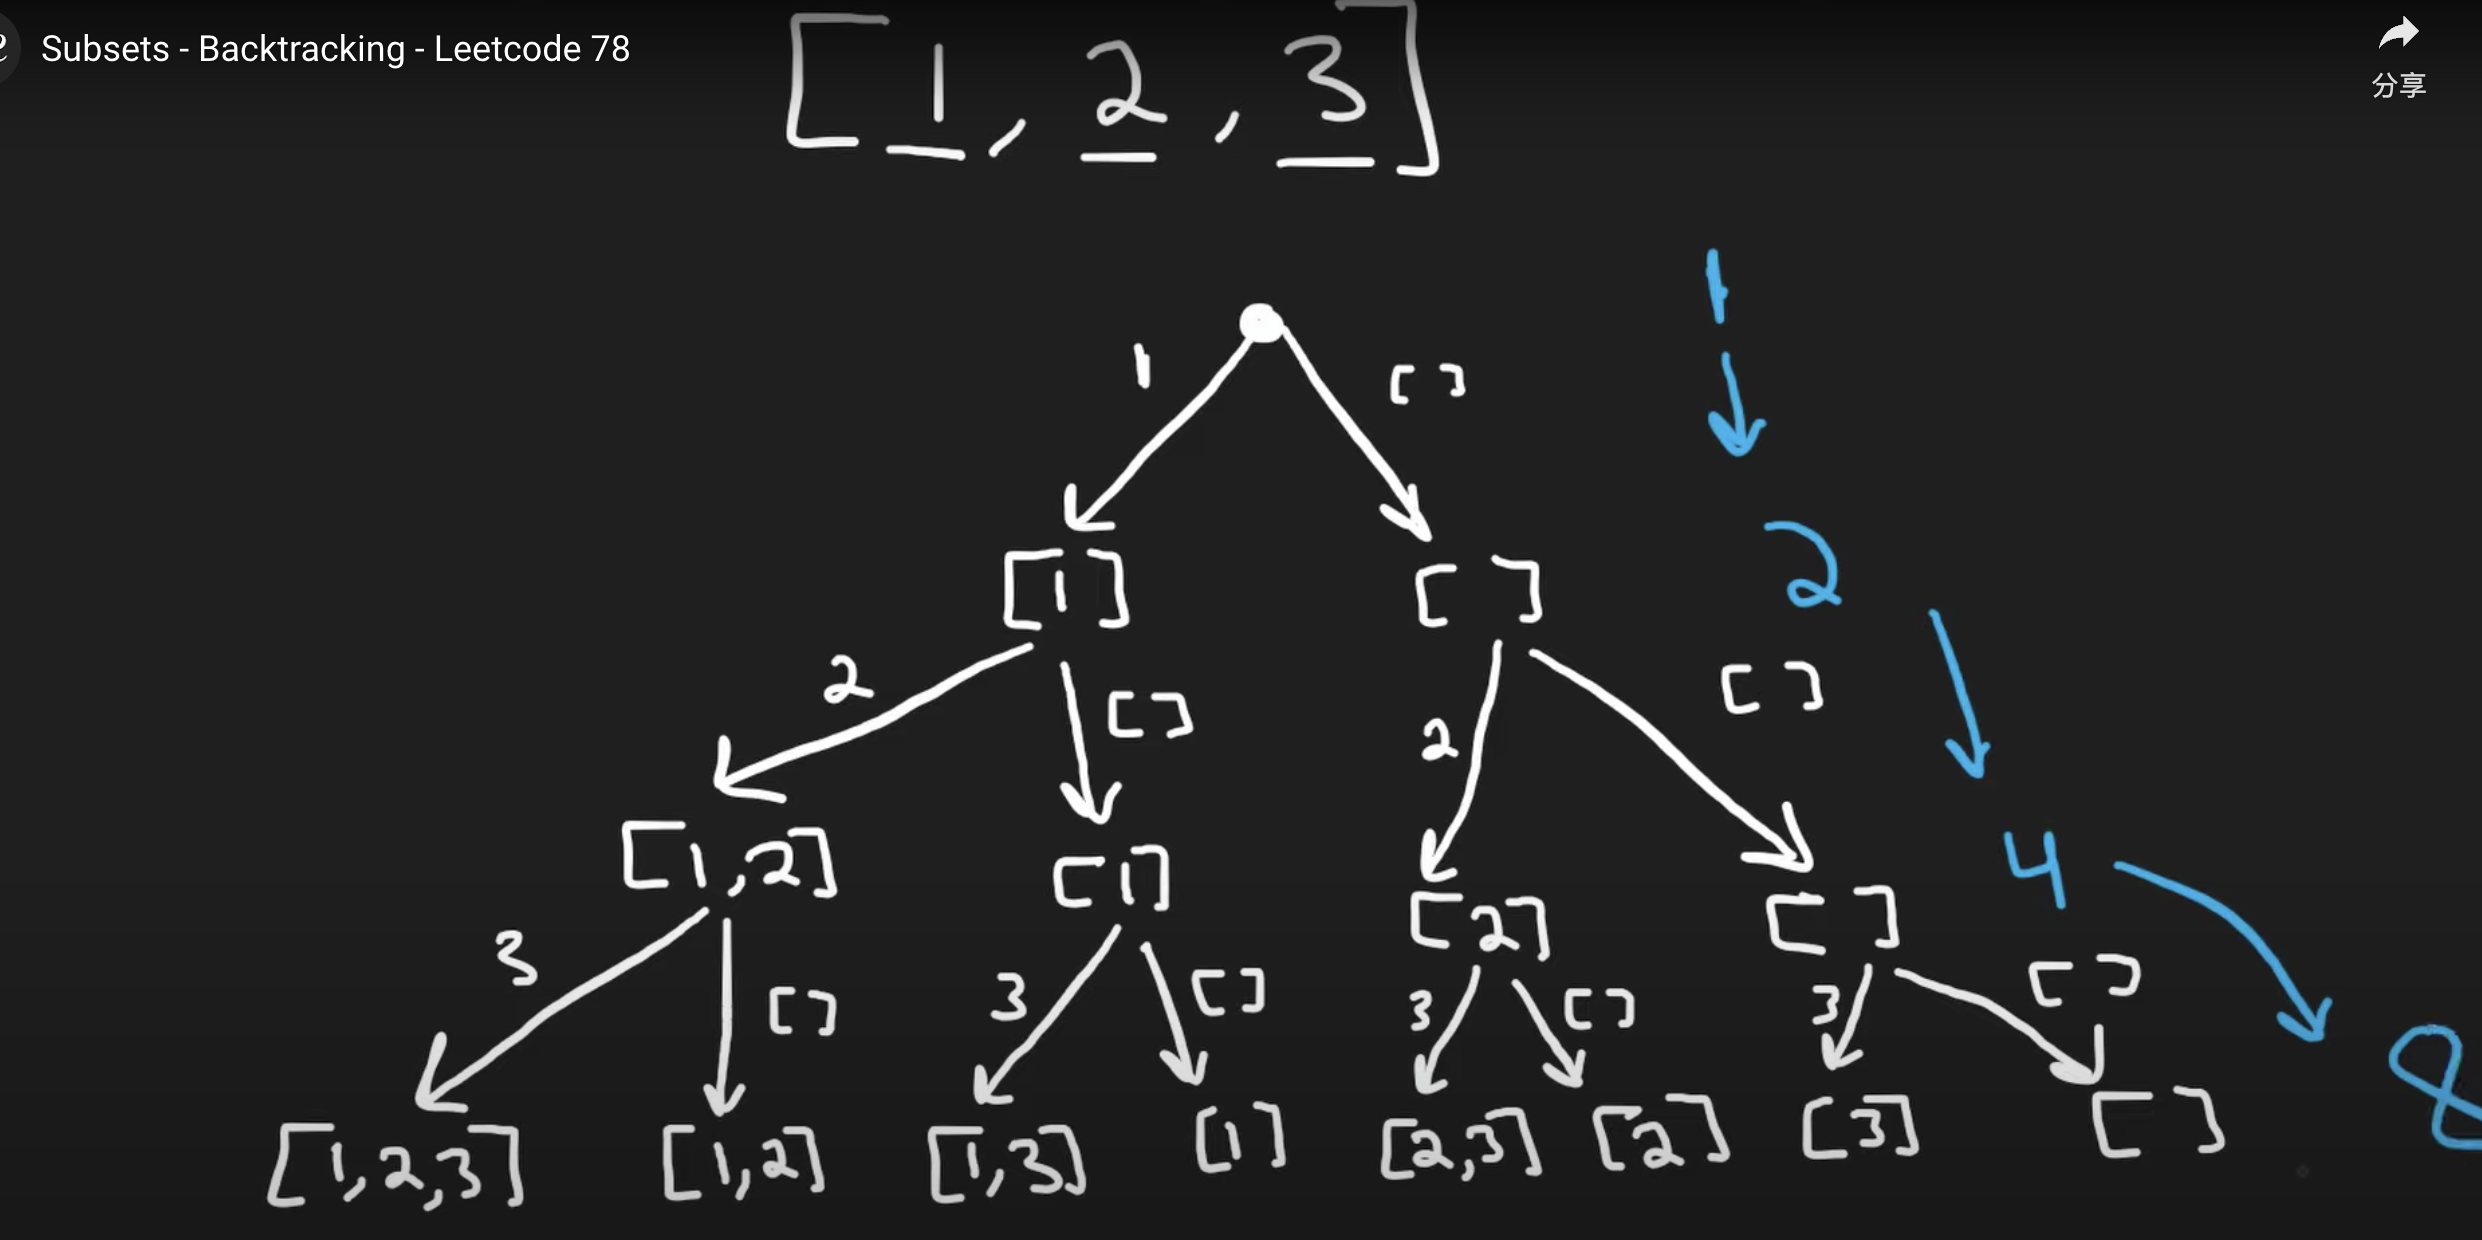 Subsets - Backtracking - Leetcode 78
分享
[1, 2, 3]
1
1 []
[1] []
2
2 [] 2 []
[1,2] [1] [2] []
4
3 [] 3 [] 3 [] 3 []
8
[1,2,3] [1,2] [1,3] [1] [2,3] [2] [3] []